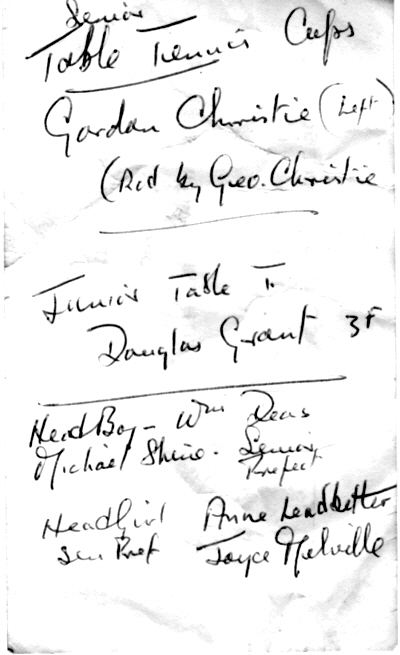 Senior
Table Tennis Cups
Gordon Christie (Left)
(Recd by Geo. Christie
Junior Table T.
Douglas Grant 3F
Head Boy - Wm Deas
Michael Shine. Senior
Prefect
Head Girl Anne Leadbetter
Sen Pref Joyce Melville